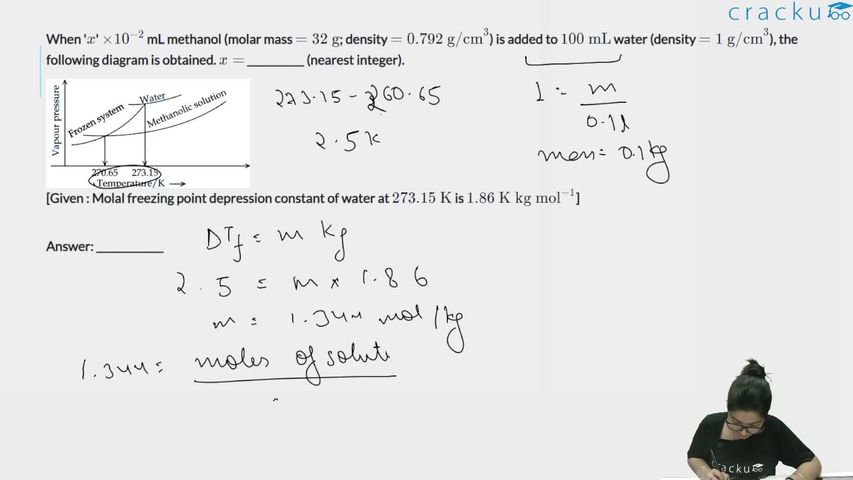 cracku
When 'x' ×10⁻² mL methanol (molar mass = 32 g; density = 0.792 g/cm³) is added to 100 mL water (density = 1 g/cm³), the
following diagram is obtained. x = ________ (nearest integer).
Vapour pressure
Frozen system
Water
Methanolic solution
270.65 273.15
Temperature/K
273.15 - 260.65
2.5 K
1 = m
0.1 l
mass = 0.1 kg
[Given : Molal freezing point depression constant of water at 273.15 K is 1.86 K kg mol⁻¹]
Answer: ________
DTf = m kg
2.5 = m × 1.86
m = 1.344 mol / kg
1.344 = moles of solute
cracku